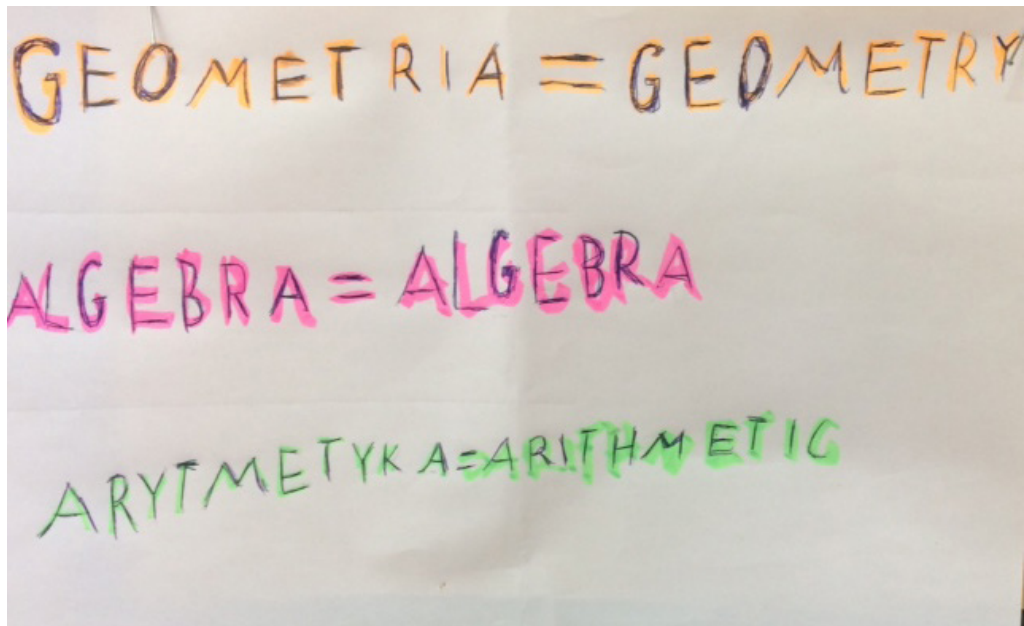 GEOMETRIA = GEOMETRY
ALGEBRA = ALGEBRA
ARYTMETYKA=ARITHMETIC